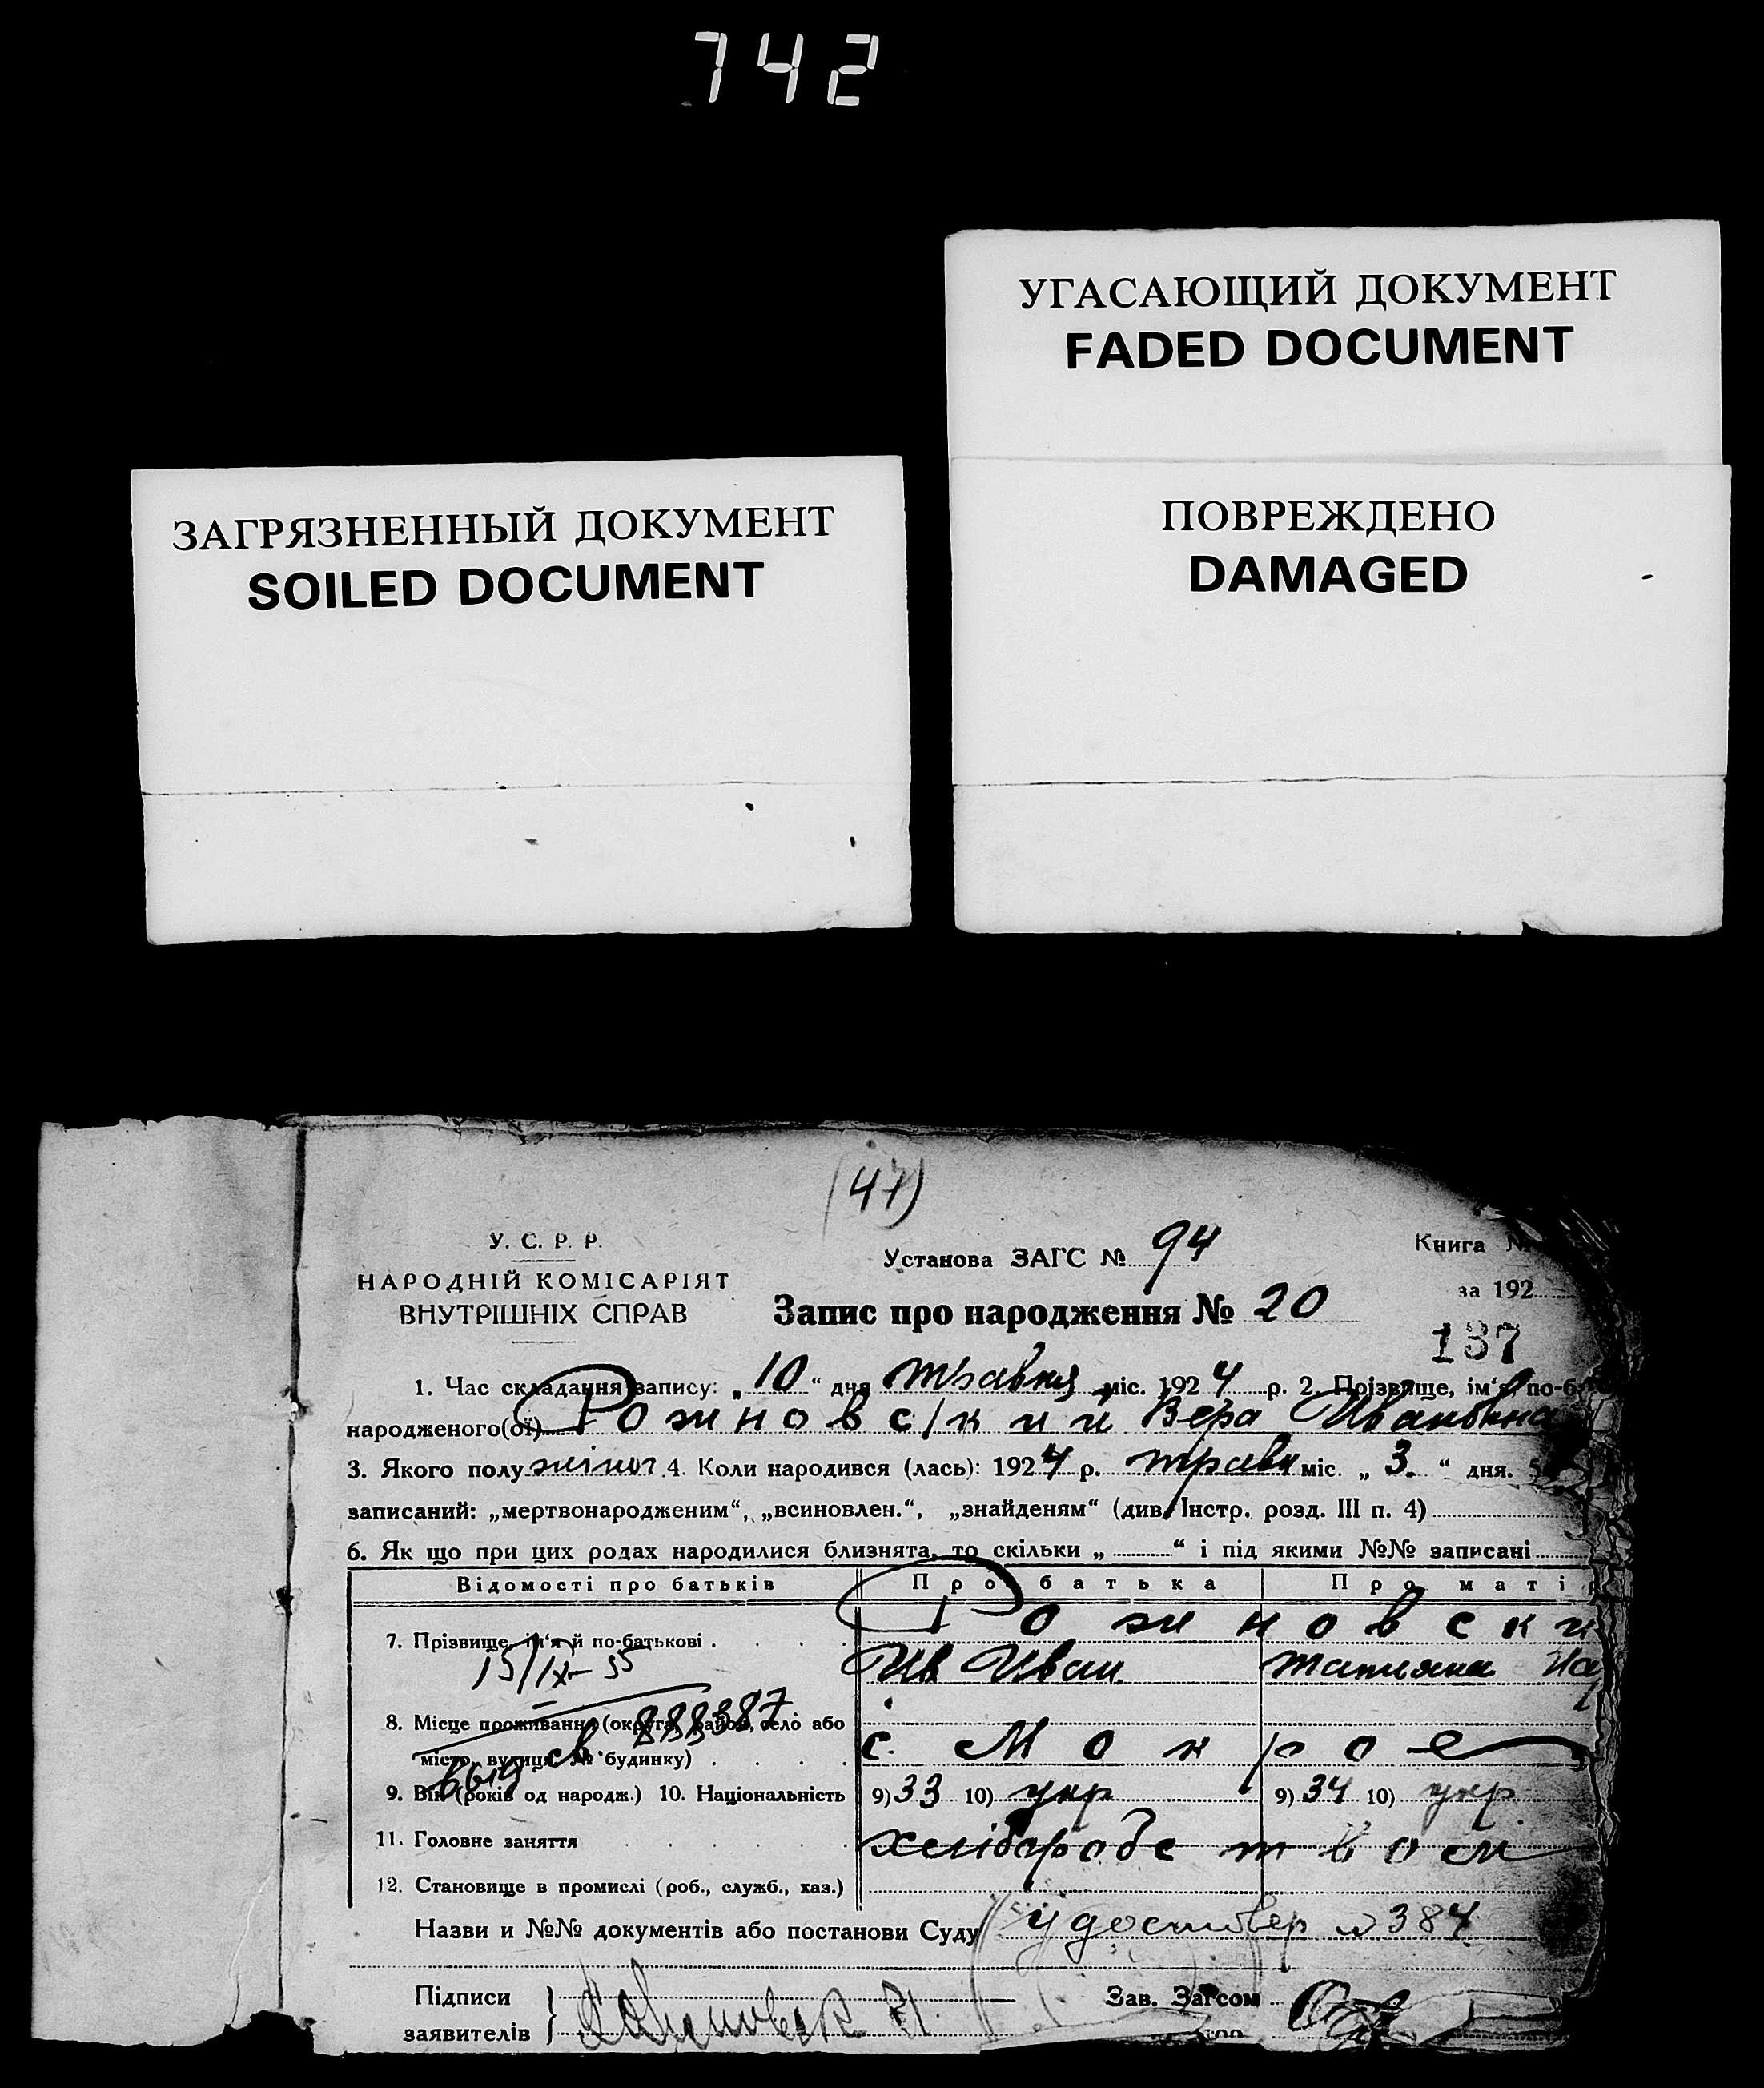 742
УГАСАЮЩИЙ ДОКУМЕНТ
FADED DOCUMENT
ЗАГРЯЗНЕННЫЙ ДОКУМЕНТ
SOILED DOCUMENT
ПОВРЕЖДЕНО
DAMAGED
(47)
У. С. Р. Р.
НАРОДНІЙ КОМІСАРІЯТ
ВНУТРІШНІХ СПРАВ
Установа ЗАГС № 94
Запис про народження № 20
Книга №
за 192
137
1. Час складання запису: „ 10 “ дня травня міс. 1924 р. 2. Прізвище, ім'я, по-б
народженого(ої) Рожновский Вера Ивановна
3. Якого полу жіноч 4. Коли народився (лась): 1924 р. травн міс. „ 3. “ дня. 5
записаний: „мертвонародженим“, „всиновлен.“, „знайденям“ (див. Інстр. розд. III п. 4)
6. Як що при цих родах народилися близнята, то скільки „ “ і під якими №№ записані
Відомості про батьків Про батька Про матір
7. Прізвище, ім'я й по-батькові Рожновски
15/IX-55 Ив Иван. Татияна
8. Місце проживання (округа, район, село або
місто, вулиця, № будинку) с. Мокрое
выд. св. 888387
9. Вік (років од народж.) 10. Національність 9) 33 10) укр 9) 34 10) укр
11. Головне заняття хліборобством
12. Становище в промислі (роб., служб., хаз.)
Назви и №№ документів або постанови Суду удостовер №384
Підписи
заявителів
Зав. Загсом